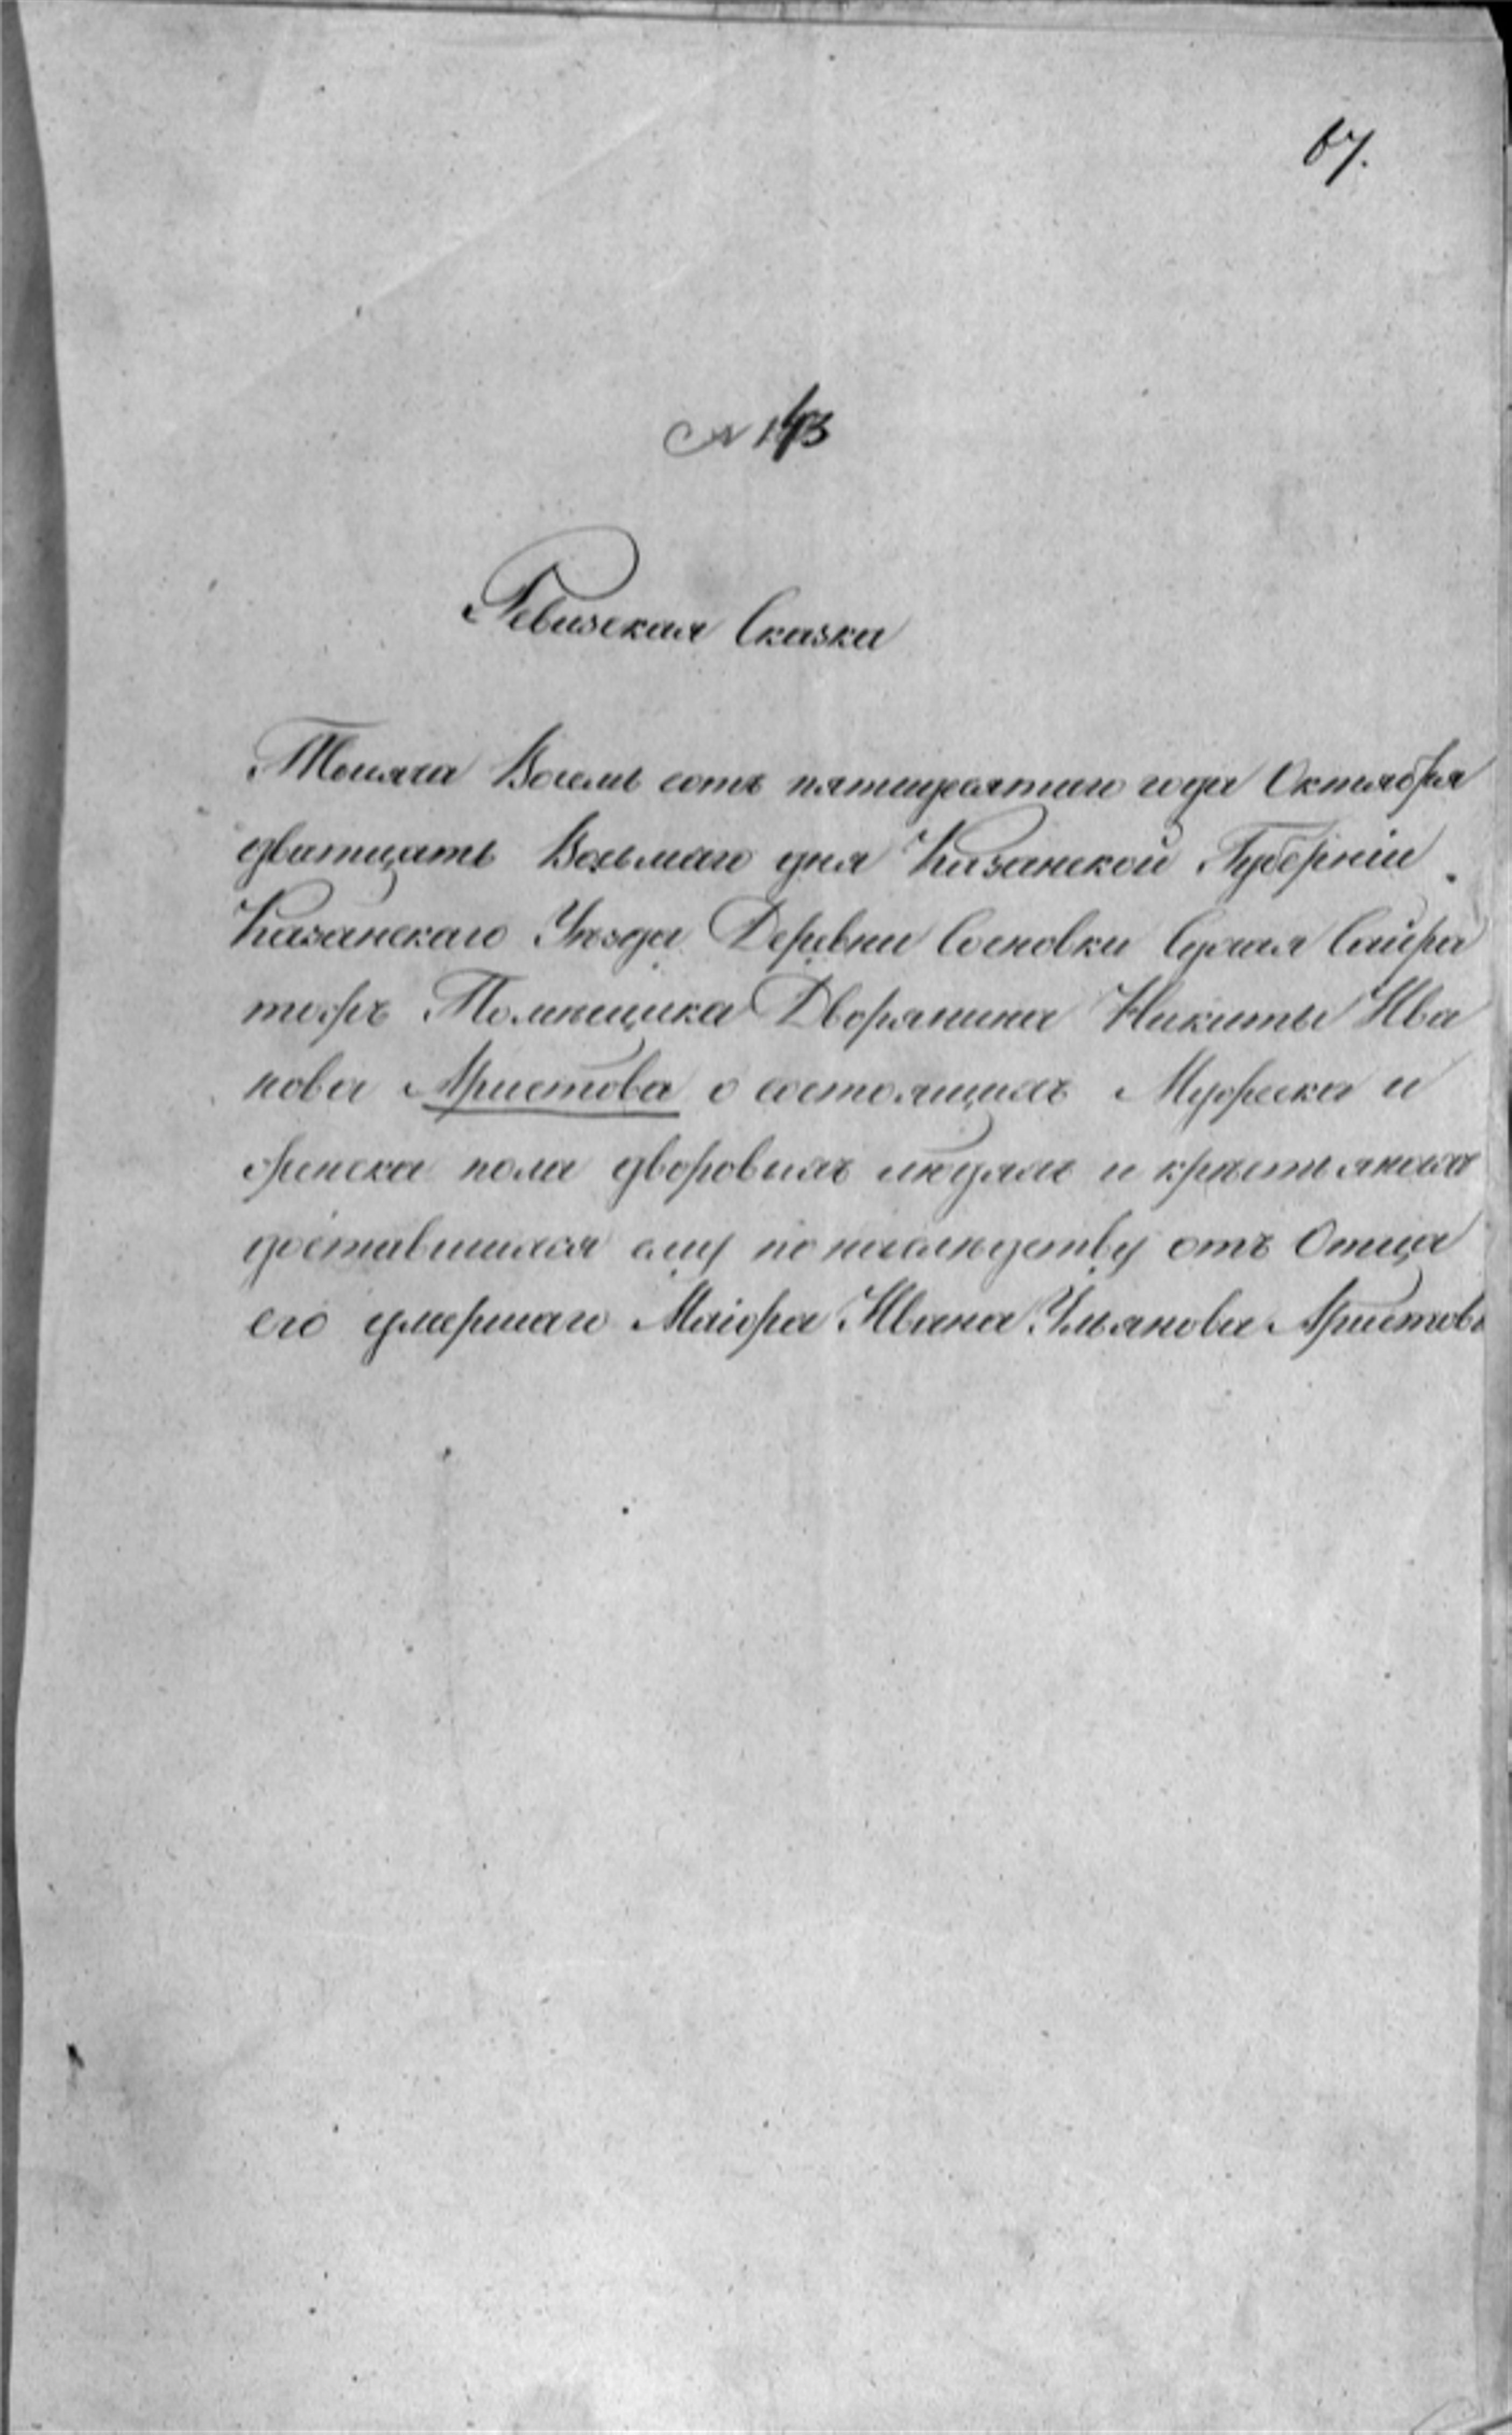 67.
№ 143
Ревизская Сказка
Тысяча Восемь сотъ пятидесятаго года Октября
дватцать Восьмаго дня Казанской Губерніи
Казанскаго Уѣзда Деревни Сосновки Сухая
тожъ Помѣщика Дворянина Никиты Ива
нова Аристова о состоящихъ Мужеска и
женска пола дворовыхъ людяхъ и крѣстьянахъ
доставшихся ему по наслѣдству отъ Отца
его умершаго Маіора Ивана Ульянова Аристова